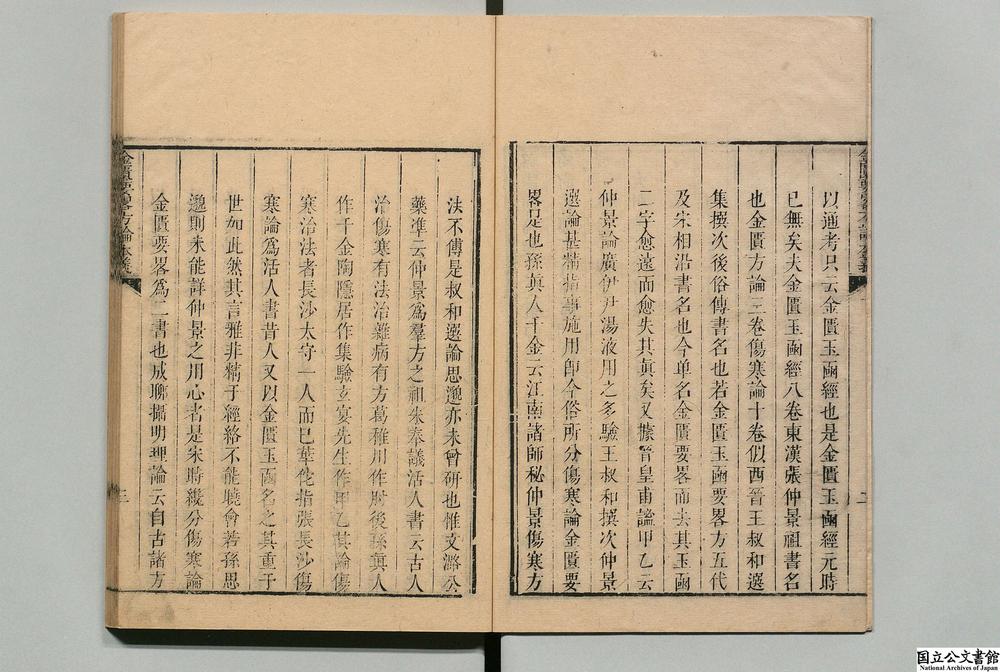 以通考只云金匱玉函經也是金匱玉函經元時
已無矣夫金匱玉函經八卷東漢張仲景祖書名
也金匱方論三卷傷寒論十卷似西晉王叔和選
集撰次後俗傳書名也若金匱玉函要畧方五代
及宋相沿書名也今单名金匱要畧而去其玉函
二字愈遠而愈失其眞矣又據晉皇甫謐甲乙云
仲景論廣伊尹湯液用之多驗王叔和撰次仲景
選論甚精指事施用即今俗所分傷寒論金匱要
畧是也孫眞人千金云江南諸師秘仲景傷寒方
二
法不傳是叔和選論思邈亦未曾研也惟文潞公
藥準云仲景爲羣方之祖朱奉議活人書云古人
治傷寒有法治雜病有方葛稚川作肘後孫眞人
作千金陶隱居作集驗玄晏先生作甲乙其論傷
寒治法者長沙太守一人而已華佗指張長沙傷
寒論爲活人書昔人又以金匱玉函名之其重于
世如此然其言雅非精于經絡不能曉會若孫思
邈則未能詳仲景之用心者是宋時纔分傷寒論
金匱要畧爲二書也成聊攝明理論云自古諸方
三
国立公文書館
National Archives of Japan